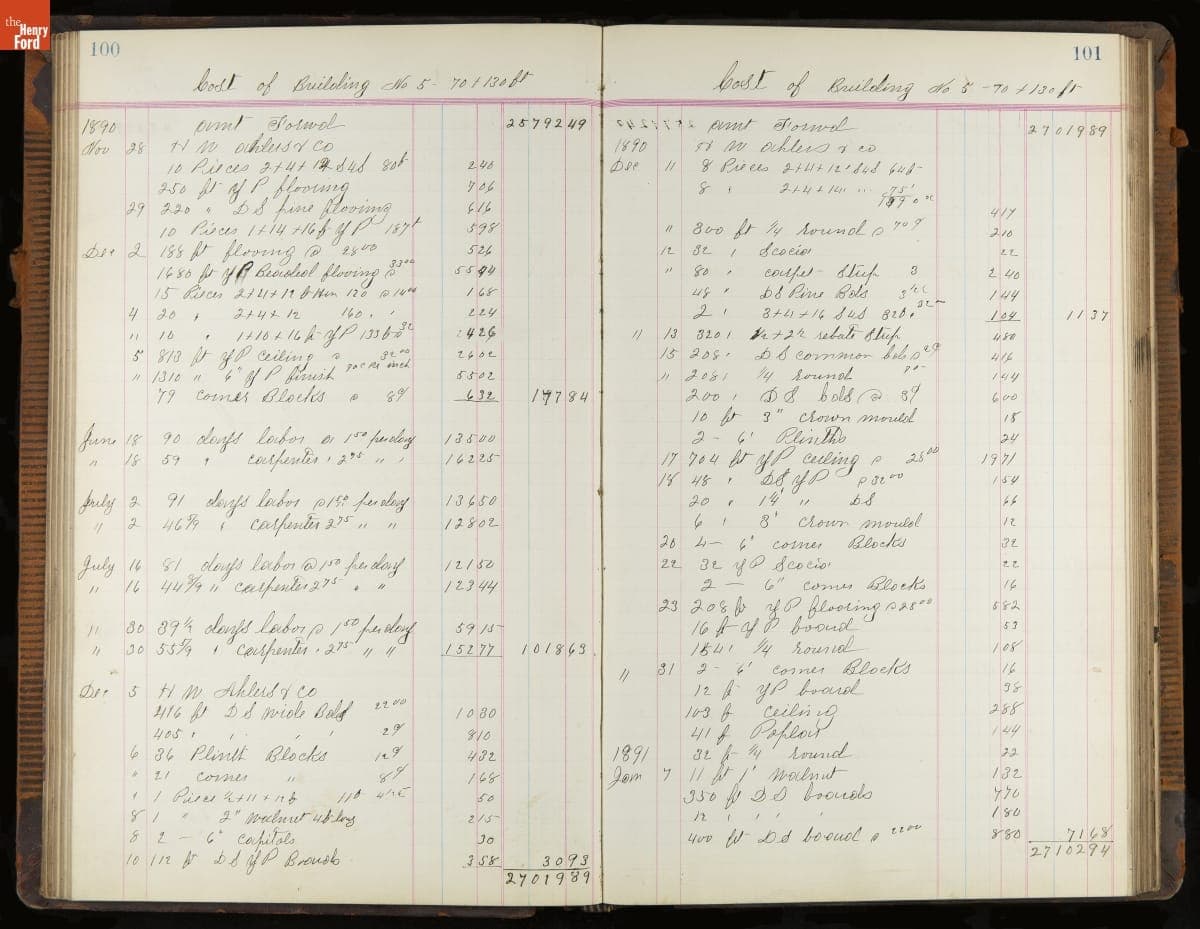 the
Henry
Ford
100
Cost of Building No 5 - 70 + 130 ft
1890 Amt Forwd 2579249
Nov 28 H W Ahlers & Co
10 Pieces 2+4+12 S4S 80ft 240
250 ft Y P flooring 706
29 220 " D S pine flooring 616
10 Pieces 1+14+16 ft Y P 187ft 598
Dec 2 188 ft flooring @ 28 00 526
1680 ft Y P Beaded flooring @ 33 00 5544
15 Pieces 2+4+12 120 @ 14 00 168
4 20 " 2+4+12 160 " " 224
" 10 " 1+10+16 ft Y P 133 ft @ 32 426
5 813 ft Y P Ceiling @ 32 00 2602
" 1310 " 6" Y P finish inch 5502
79 Corner Blocks @ 8¢ 632 19784
June 18 90 days labor @ 1 50 per day 13500
" 18 59 " Carpenter " 2 75 " " 16225
July 2 91 days labor @ 1 50 per day 13650
" 2 46 5/9 " Carpenter 2 75 " " 12802
July 16 81 days labor @ 1 50 per day 12150
" 16 44 8/9 " Carpenter 2 75 " " 12344
" 30 39 1/2 days labor @ 1 50 per day 5915
" 30 55 5/9 " Carpenter " 2 75 " " 15277 101863
Dec 5 H W Ahlers & Co
416 ft D S wide Bds 22 00 1080
405 " " " " 2¢ 810
6 36 Plinth Blocks 12¢ 432
" 21 corner " 8¢ 168
" 1 Piece 1/2+11+12 ft 11ft 50
8 1 " 2" walnut 4 ft long 215
8 2 - 6" Capitols 30
10 112 ft D S Y P Boards 358 3093
2701989
101
Cost of Building No 5 - 70 + 130 ft
Amt Forwd 2701989
1890 H W Ahlers & Co
Dec 11 8 Pieces 2+4+12' S4S 64ft
8 " 2+4+14' " " 75'
417
" 300 ft 1/4 round @ 70¢ 210
12 32 " Scocia 22
" 80 " carpet - Strip 3 2 40
48 " D S Pine Bds 144
2 " 3+4+16 S4S 32ft " 104 1137
" 13 320 " 1/2+2 1/2 rebate Strip 480
15 208 " D S common bds @ 2¢ 416
" 208 " 1/4 round 144
200 " D S bds @ 3¢ 600
10 ft 3" crown mould 15
2 - 6' Plinths 24
17 704 ft Y P ceiling @ 28 00 1971
18 48 " D S Y P @ 32 00 154
20 " 1 1/4" " D S 66
6 " 3' crown mould 12
20 4 - 6' corner Blocks 32
22 32 Y P Scocia 22
2 - 6" corner Blocks 16
23 208 ft Y P flooring @ 28 00 582
16 ft Y P board 53
154 " 1/4 round 108
" 31 2 - 6' corner Blocks 16
12 ft Y P board 38
103 ft ceiling 288
41 ft Poplar 144
1891 32 ft 1/4 round 22
Jan 7 11 ft 1" walnut 132
350 ft D S boards 770
12 " " " " 180
400 ft D S board @ 22 00 880 7168
2710294